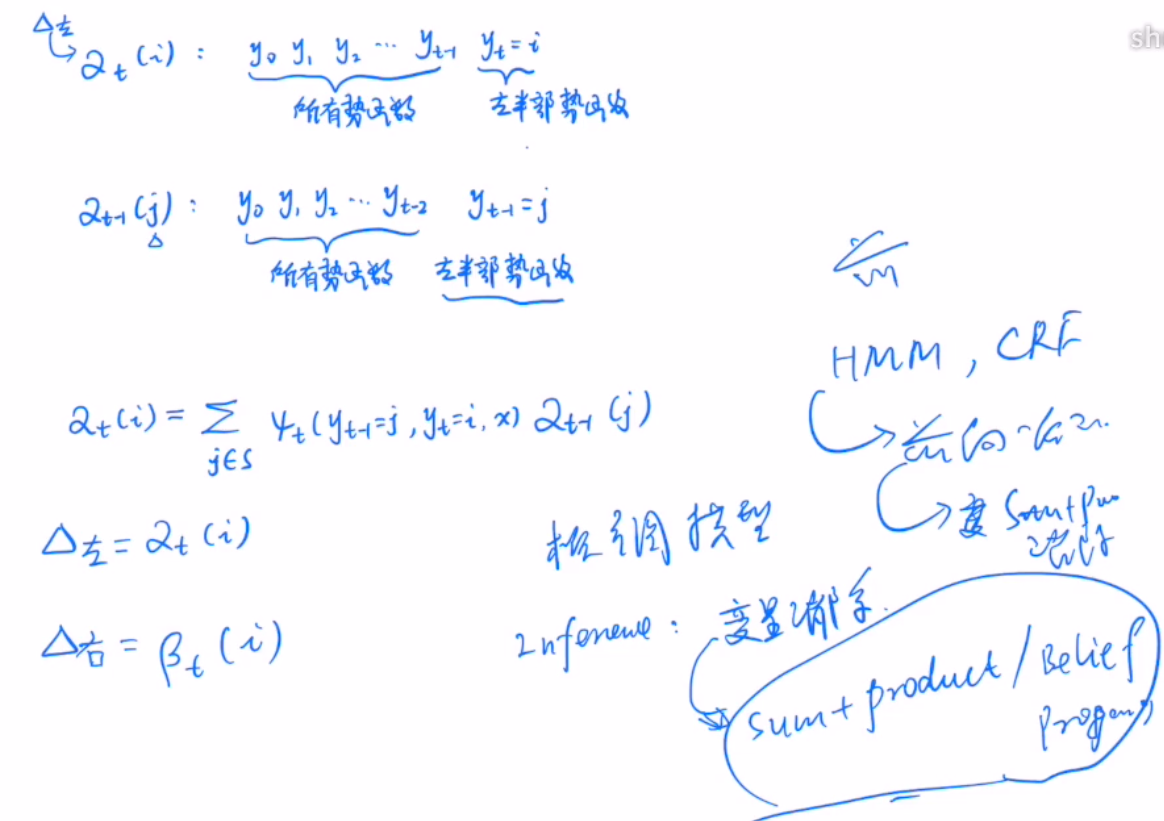 △左
α_t(i): y_0 y_1 y_2 … y_{t-1} y_t=i
所有势函数 左半部势函数
α_{t-1}(j): y_0 y_1 y_2 … y_{t-2} y_{t-1}=j
△
所有势函数 左半部势函数
α_t(i) = Σ_{j∈S} ψ_t(y_{t-1}=j, y_t=i, x) α_{t-1}(j)
△左 = α_t(i)
△右 = β_t(i)
HMM, CRF
概率图模型
Inference: 变量
sum+product/Belief
sh